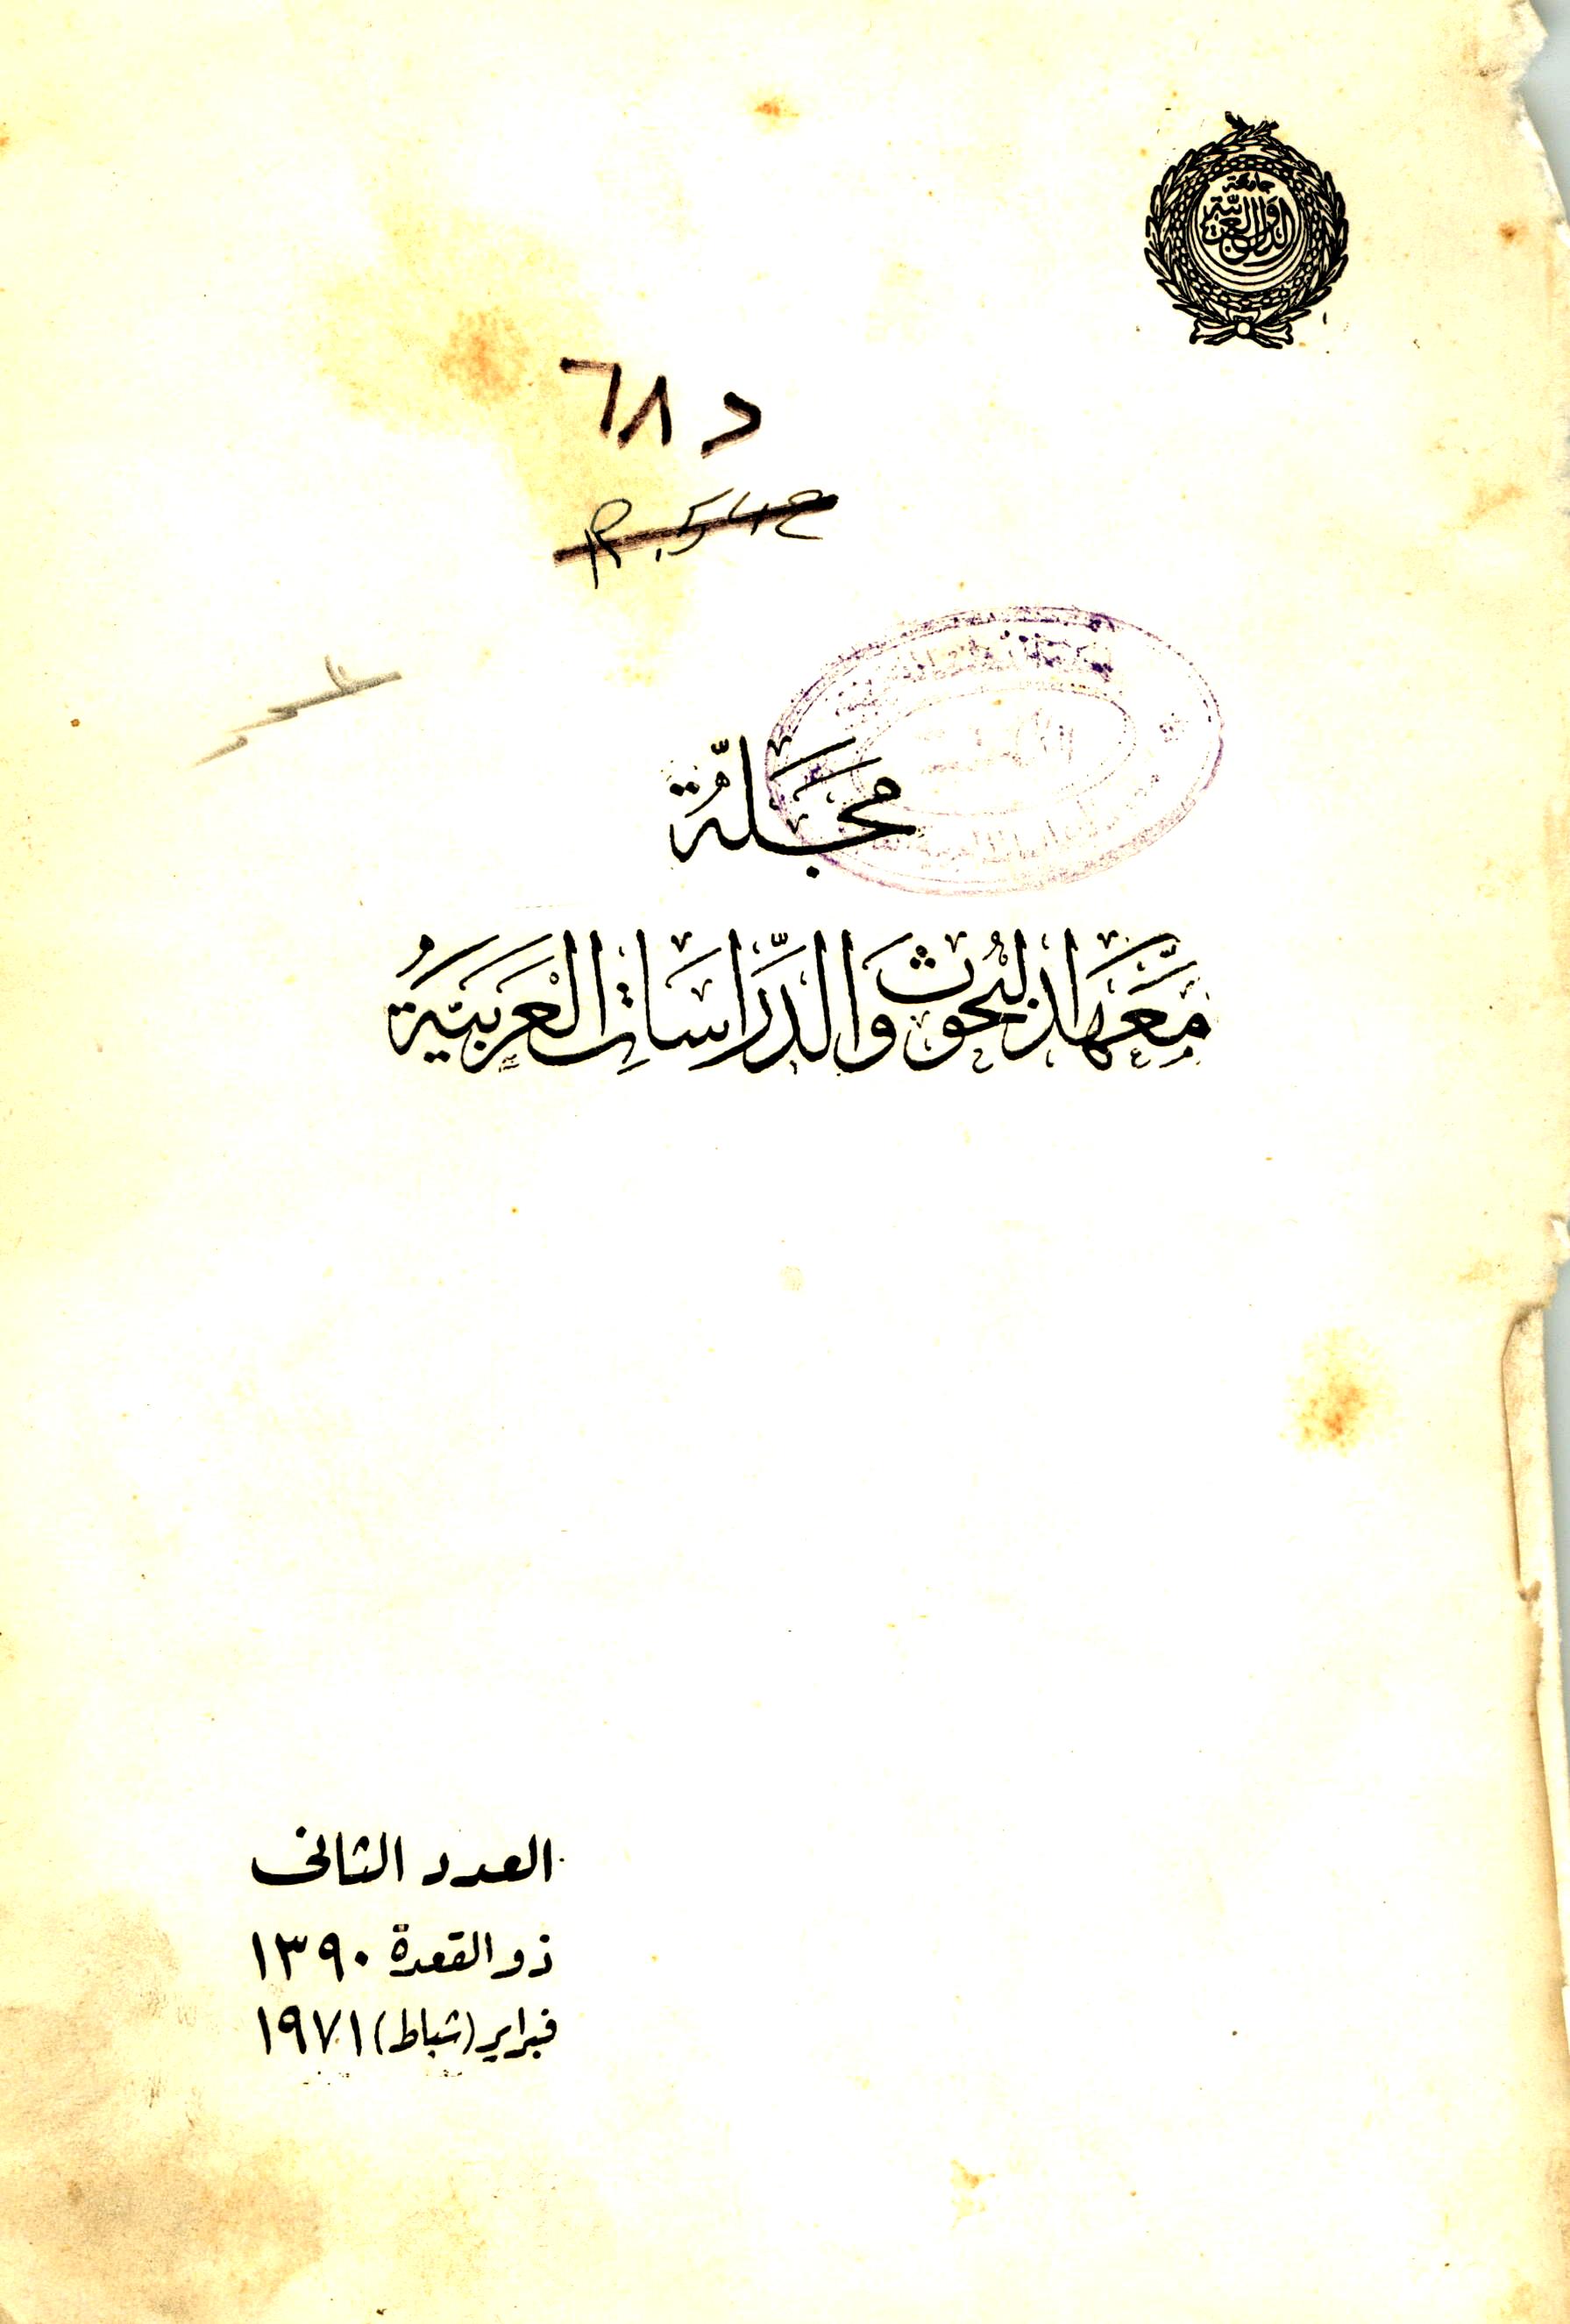 جامعة
الدول العربية
د ٦٨
مَجَلَّةُ
مَعْهَد البُحوث وَالدِّرَاسَاتِ العَرَبيَّةُ
العدد الثانى
ذو القعدة ١٣٩٠
فبراير (شباط) ١٩٧١